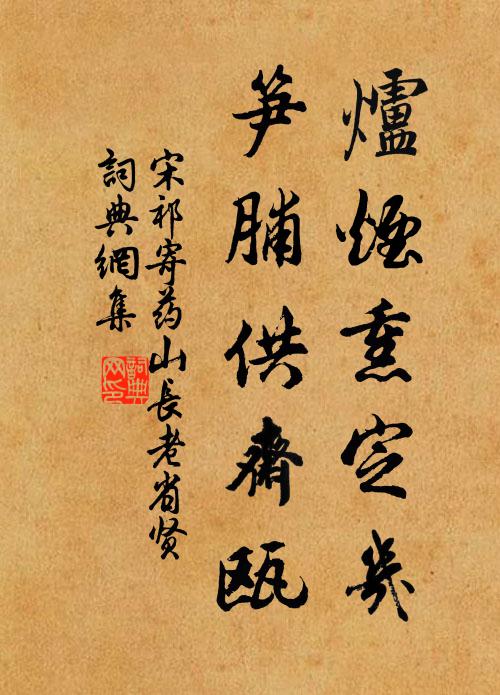 爐煙熏定几
笋脯供齋甌
宋祁寄药山長老省贤
詞典網集
詞典网印